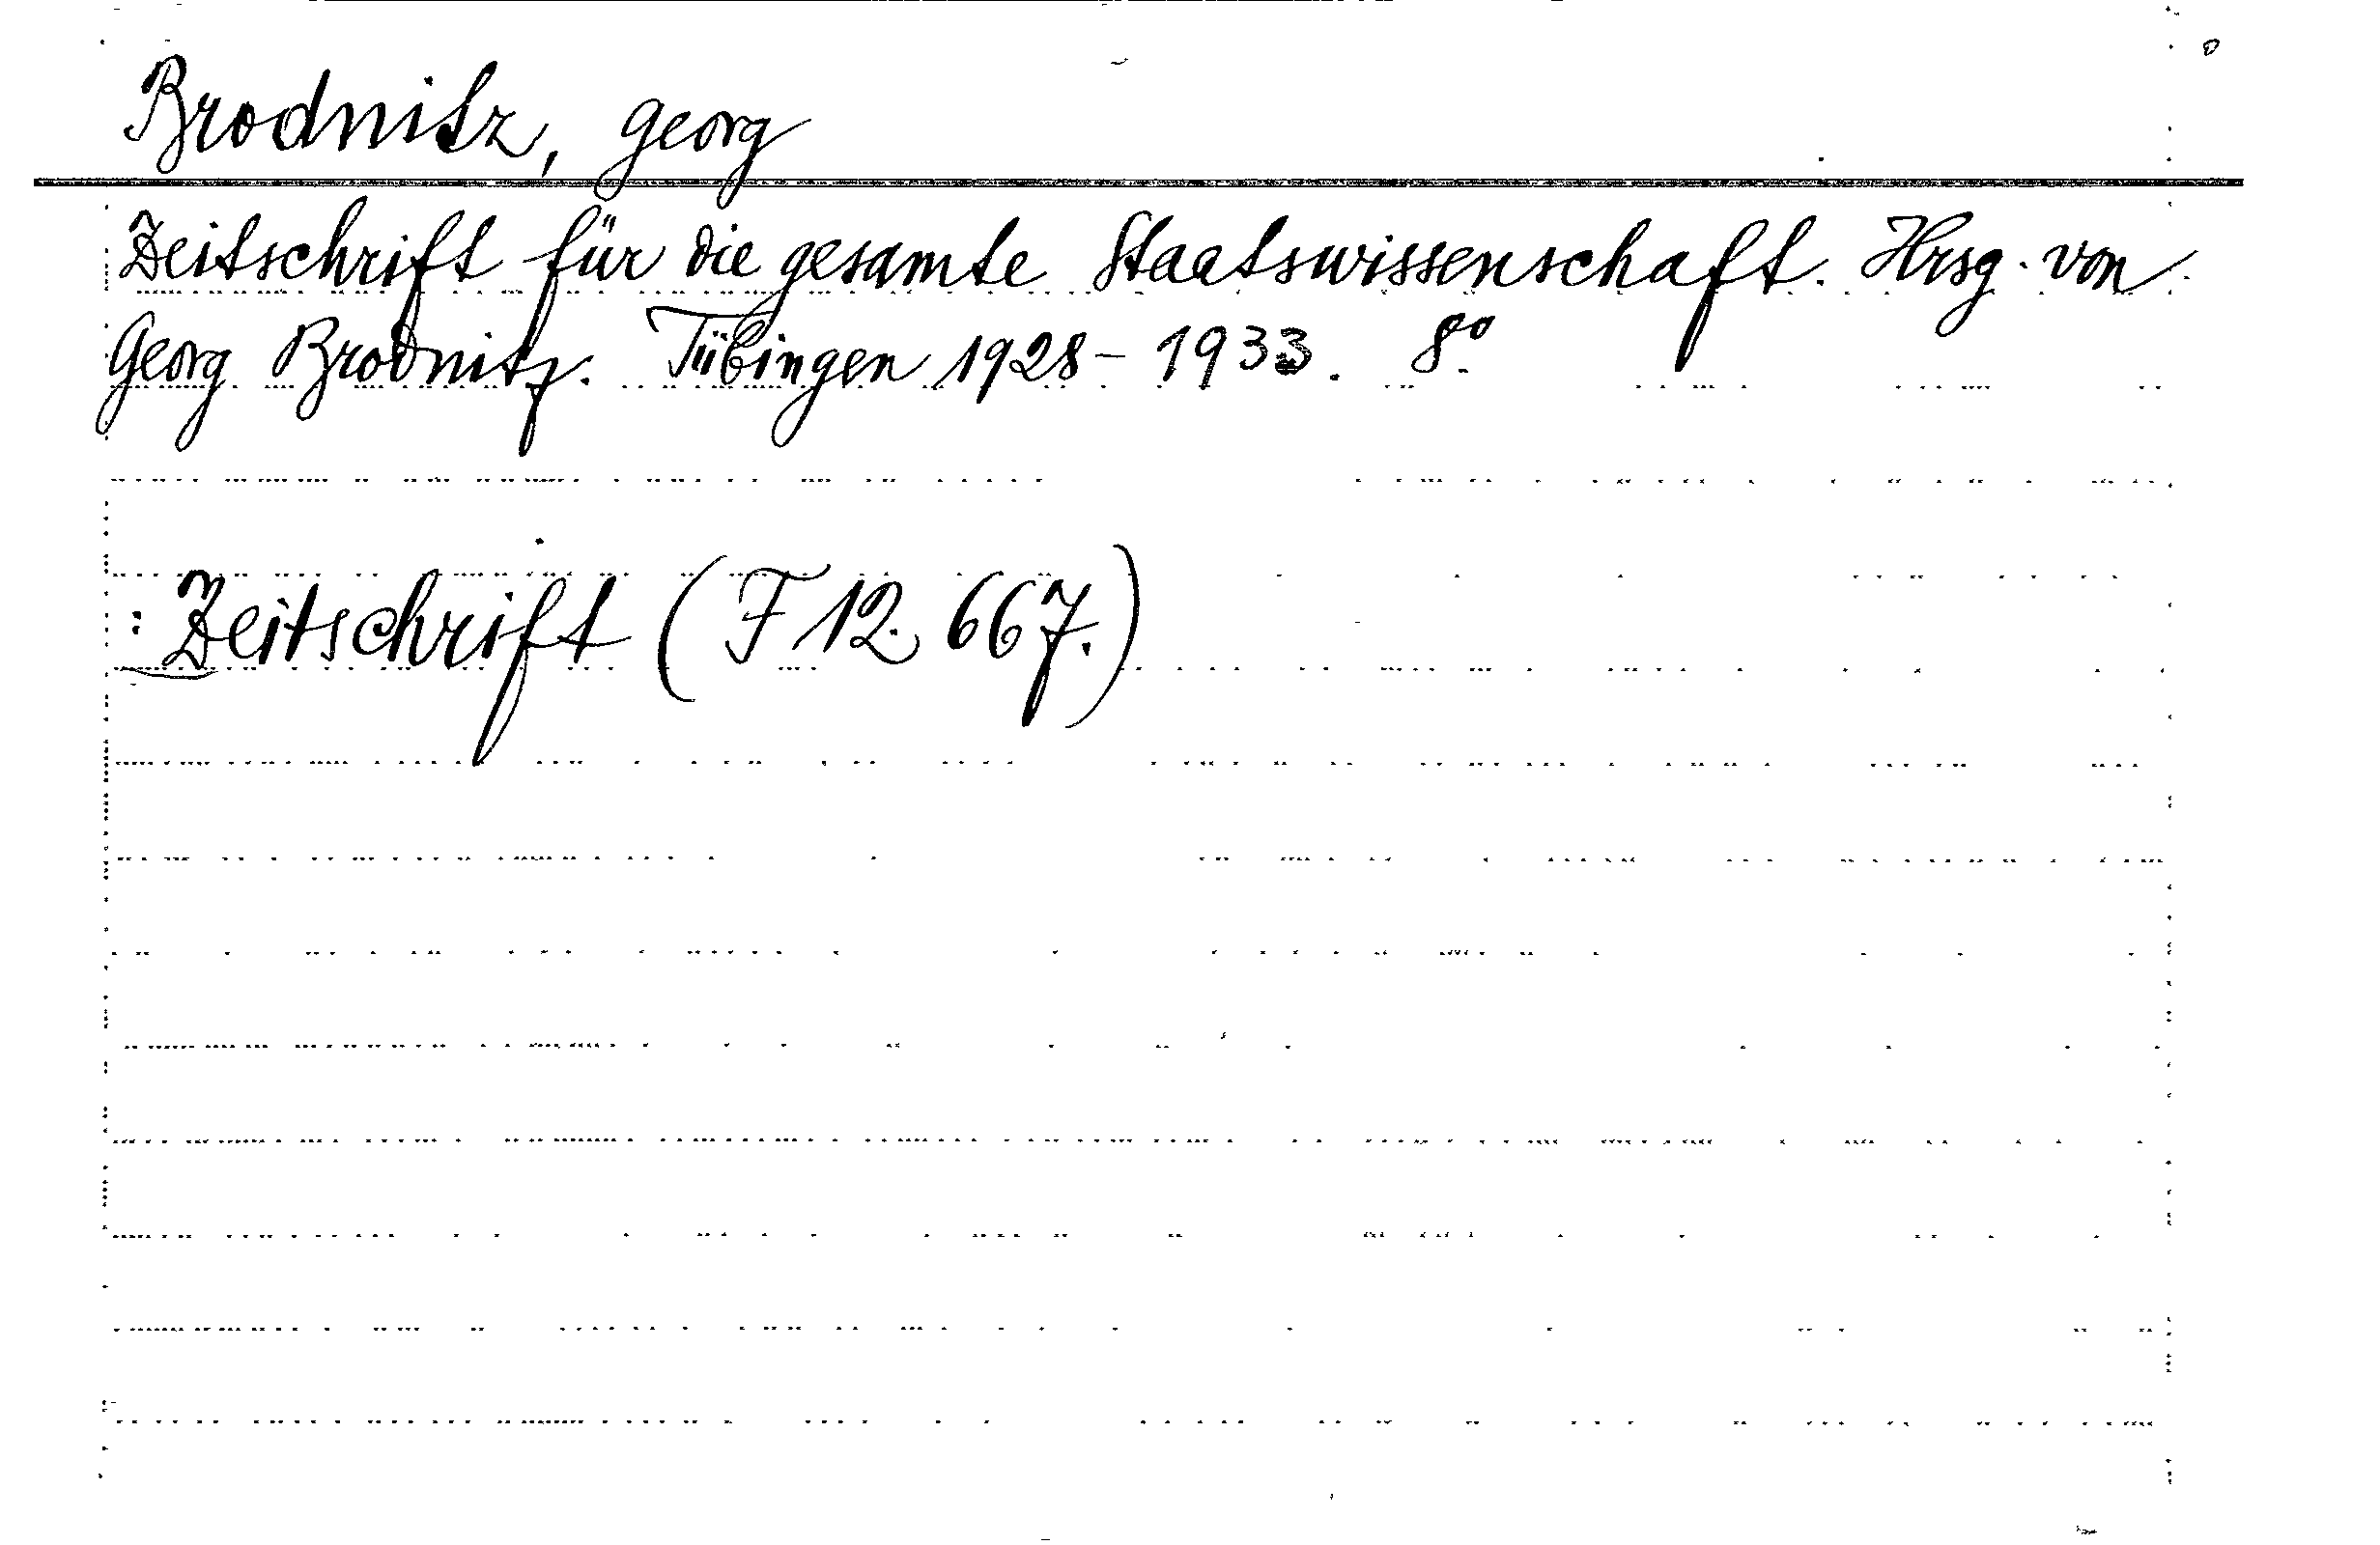 Brodnitz, Georg
Zeitschrift für die gesamte Staatswissenschaft. Hrsg. von
Georg Brodnitz. Tübingen 1928-1933. 8°.
: Zeitschrift (F 12. 667.)